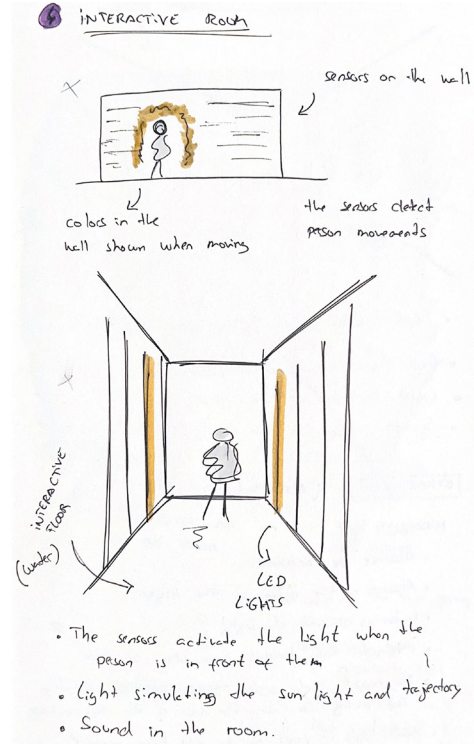 6 INTERACTIVE ROOM
sensors on the wall
colors in the
wall shown when moving
the sensors detect
person movements
INTERACTIVE
FLOOR
(water)
LED
LIGHTS
• The sensors activate the light when the
person is in front of them
• Light simulating the sun light and trajectory
• Sound in the room.